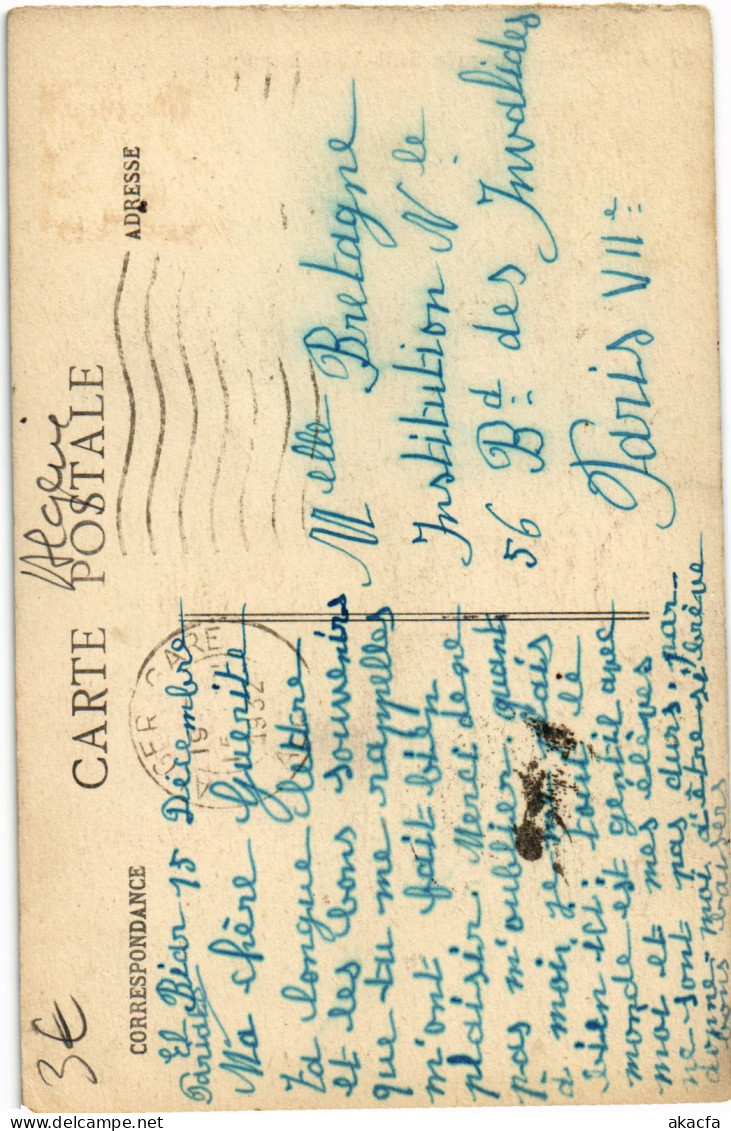 Algérie
CARTE POSTALE
CORRESPONDANCE
ADRESSE
ALGER GARE
15
1932
El Biar 15 Décembre
Ma chère Guerite
Ta longue lettre
et les bons souvenirs
que tu me rappelles
m'ont fait bien
plaisir. Merci de ne
pas m'oublier. quant
à moi, je me plais
bien ici; tout le
monde est gentil avec
moi et mes élèves
ne sont pas durs; par-
donne-moi d'être si brève
bons baisers
Melle Bretagne
Institution Nle
56 Bd des Invalides
Paris VIIe
3€
akacfa